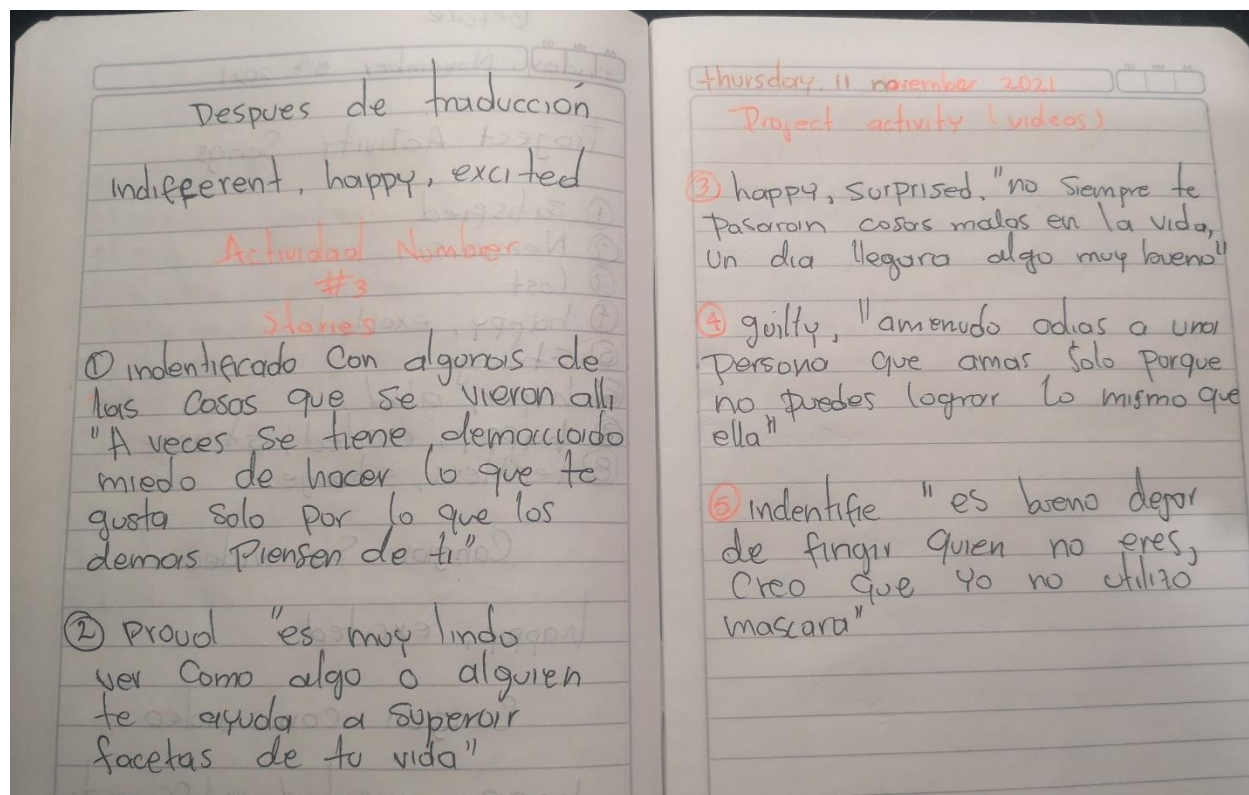 Despues de traducción
indifferent, happy, excited
Actividad Number
#3
Stories
① indentificado con algunas de
las cosas que se vieron alli
"A veces se tiene demaciado
miedo de hacer lo que te
gusta solo por lo que los
demas piensen de ti"
② Proud "es muy lindo
ver como algo o alguien
te ayuda a superar
facetas de tu vida"
thursday, 11 november 2021
Project activity (videos)
③ happy, surprised, "no siempre te
pasaran cosas malas en la vida,
un dia llegara algo muy bueno"
④ guilty, "amenudo odias a una
persona que amas solo porque
no puedes lograr lo mismo que
ella"
⑤ indentifie "es bueno dejar
de fingir quien no eres,
creo que yo no utilizo
mascara"